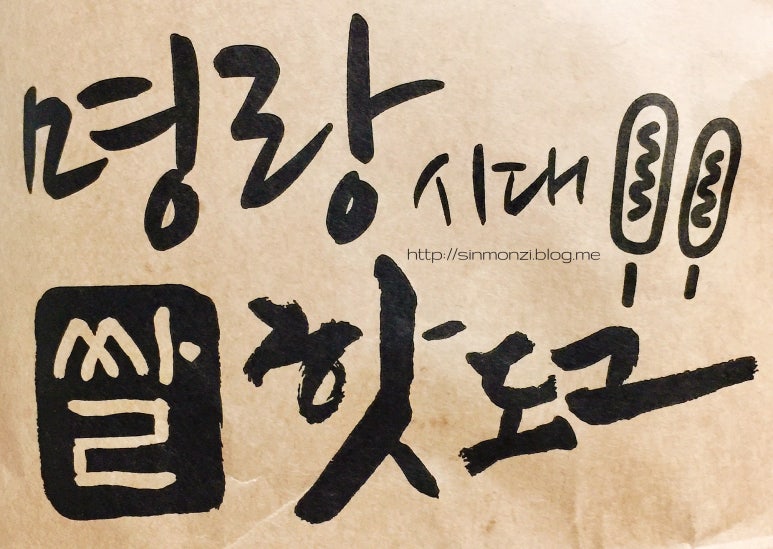 명랑시대
http://sinmonzi.blog.me
쌀핫도그